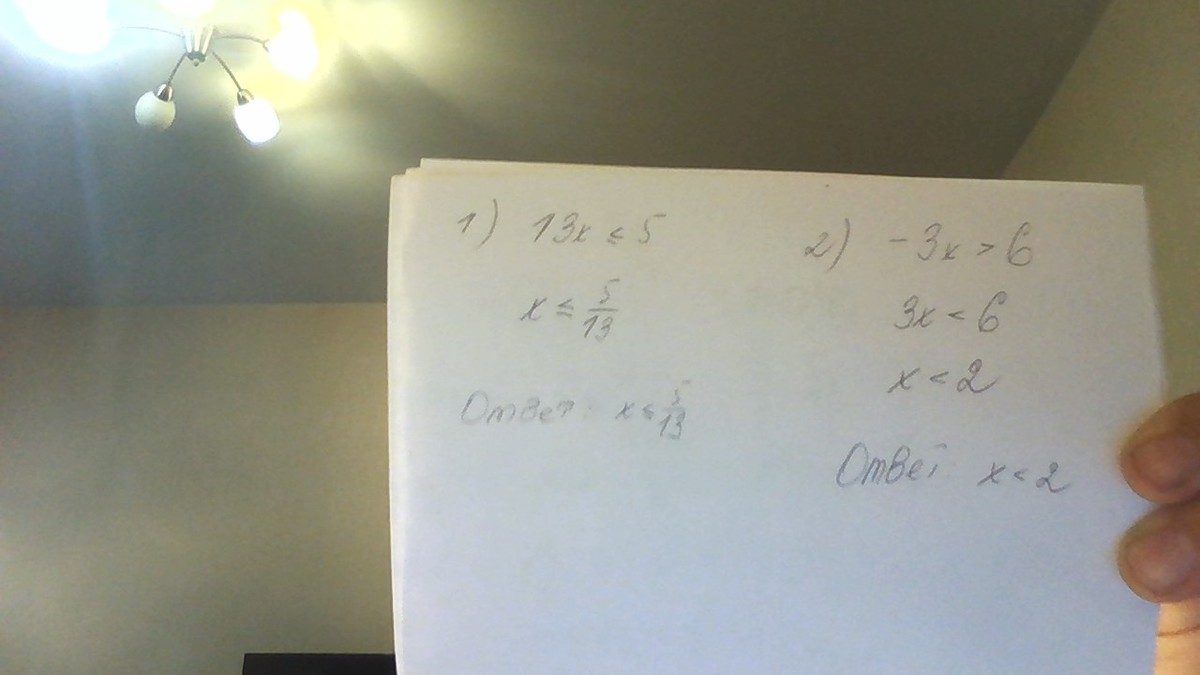 1) 13x ≤ 5
x ≤ 5/13
Ответ: x ≤ 5/13
2) -3x > 6
3x < 6
x < 2
Ответ: x < 2